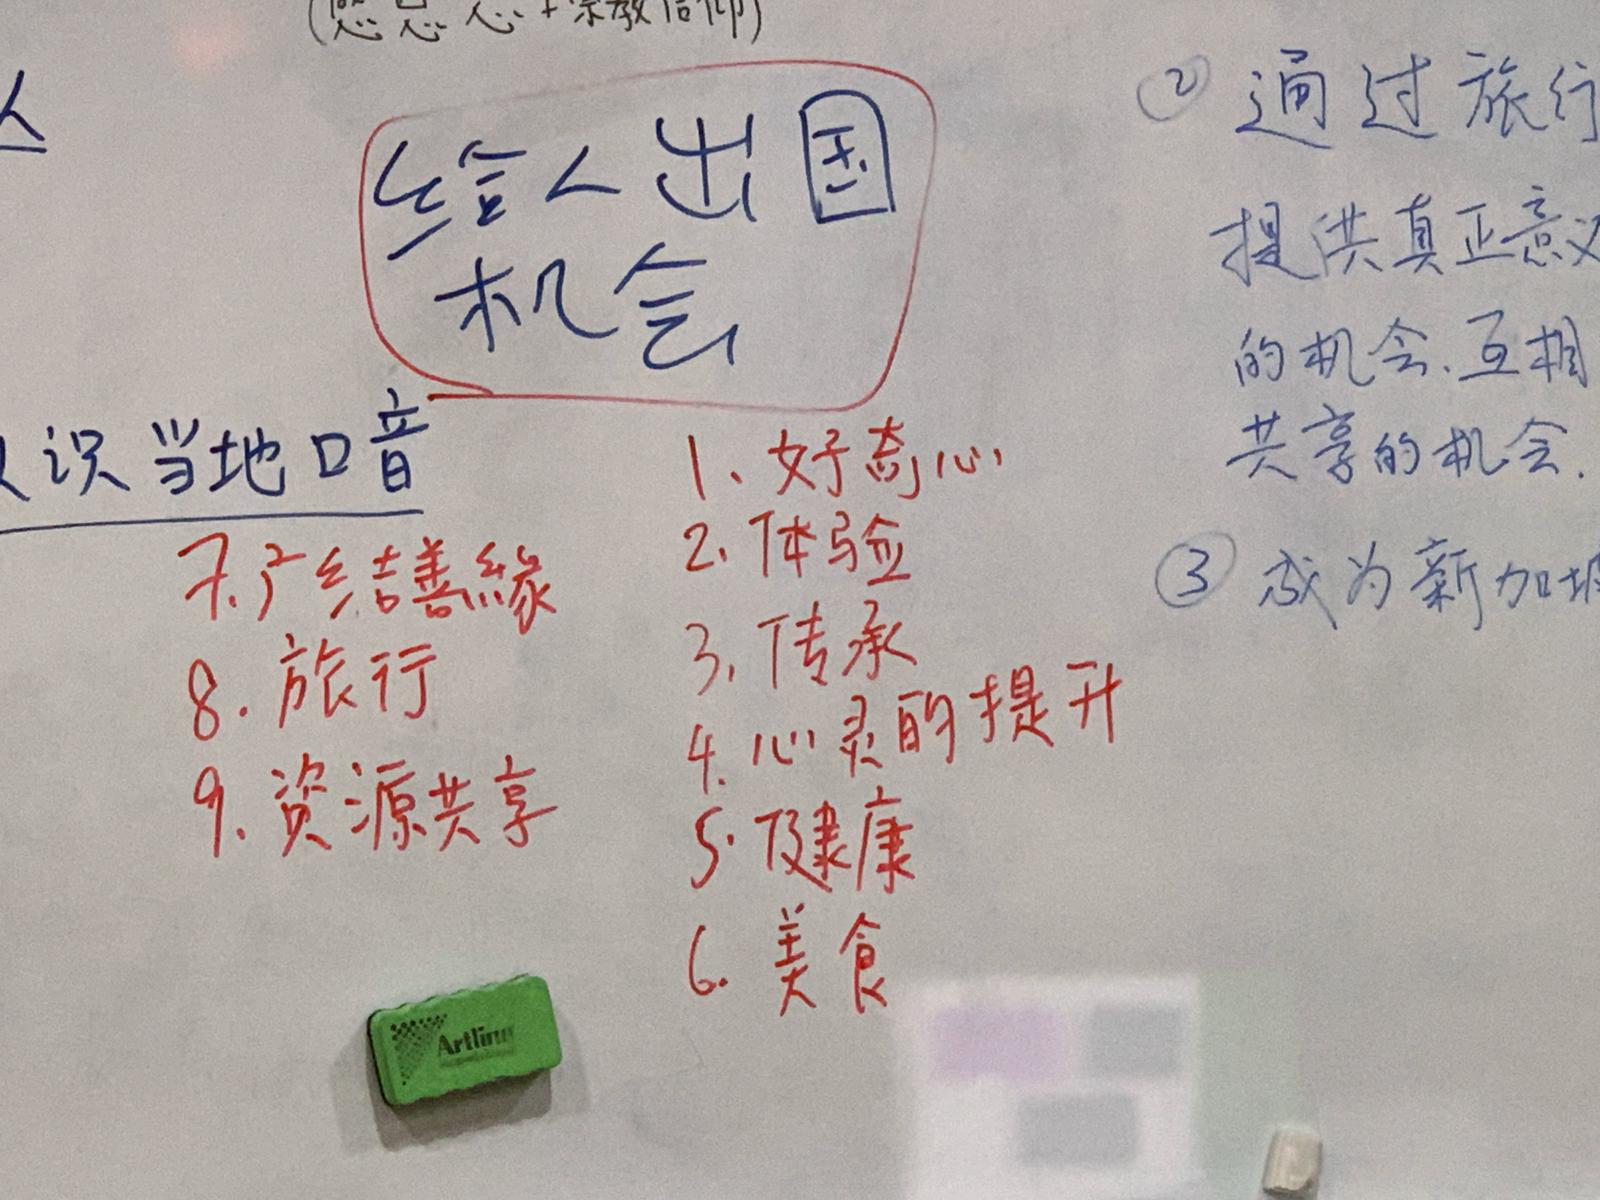 (感恩心+宗教信仰)
人
给人出国
机会
认识当地口音
1、好奇心
2.体验
3.传承
4.心灵的提升
5.健康
6.美食
7.广结善緣
8.旅行
9.资源共享
② 通过旅行
提供真正意义
的机会.互相
共享的机会.
③ 成为新加坡
Artline